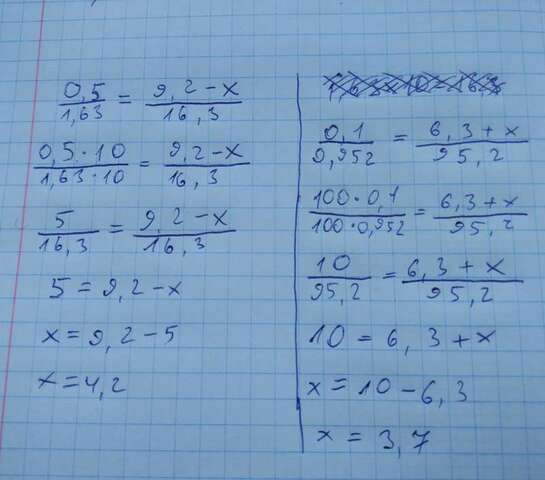 0,5/1,63 = 9,2-x/16,3
0,5·10/1,63·10 = 9,2-x/16,3
5/16,3 = 9,2-x/16,3
5 = 9,2-x
x = 9,2-5
x = 4,2
0,1/0,952 = 6,3+x/95,2
100·0,1/100·0,952 = 6,3+x/95,2
10/95,2 = 6,3+x/95,2
10 = 6,3+x
x = 10-6,3
x = 3,7